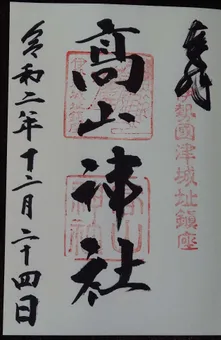 奉拝
伊勢國津城址鎮座
高山神社
令和二年十二月二十四日